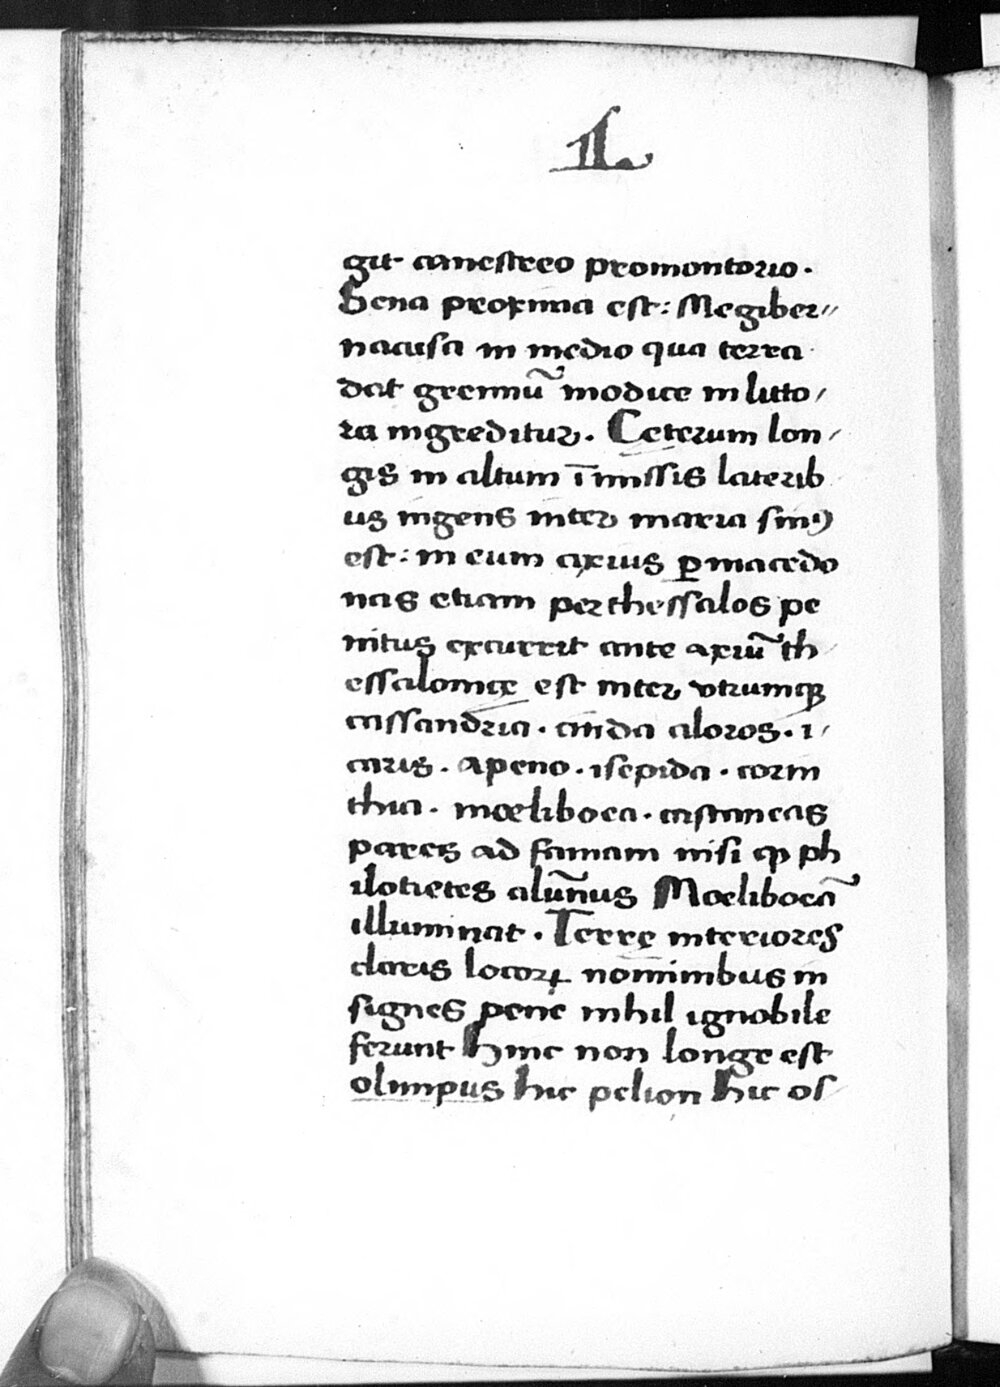 .II.
git canestreo promontorio.
Sena proxima est: Megiber〃
nacusa in medio qua terra
dat gremiū modice in litto/
ra ingreditur. Ceterum lon/
gis in altum īmissis laterib
us ingens inter maria sinꝰ
est: in eum axius ꝑ macedo
nas etiam per thessalos pe
nitus excurrit ante axiū th
essalonicę est inter vtrumqꝫ
cassandria. cinda aloros. i/
caris. Apeno. isepida. corin
thia. mœliboea. castaneas
pares ad famam nisi ꝙ ph
ilotietes alūnus Mœliboeā
illuminat. Terrę interiores
claris locorꝝ nominibus in
signes pene nihil ignobile
ferunt hinc non longe est
olimpus hic pelion hic os